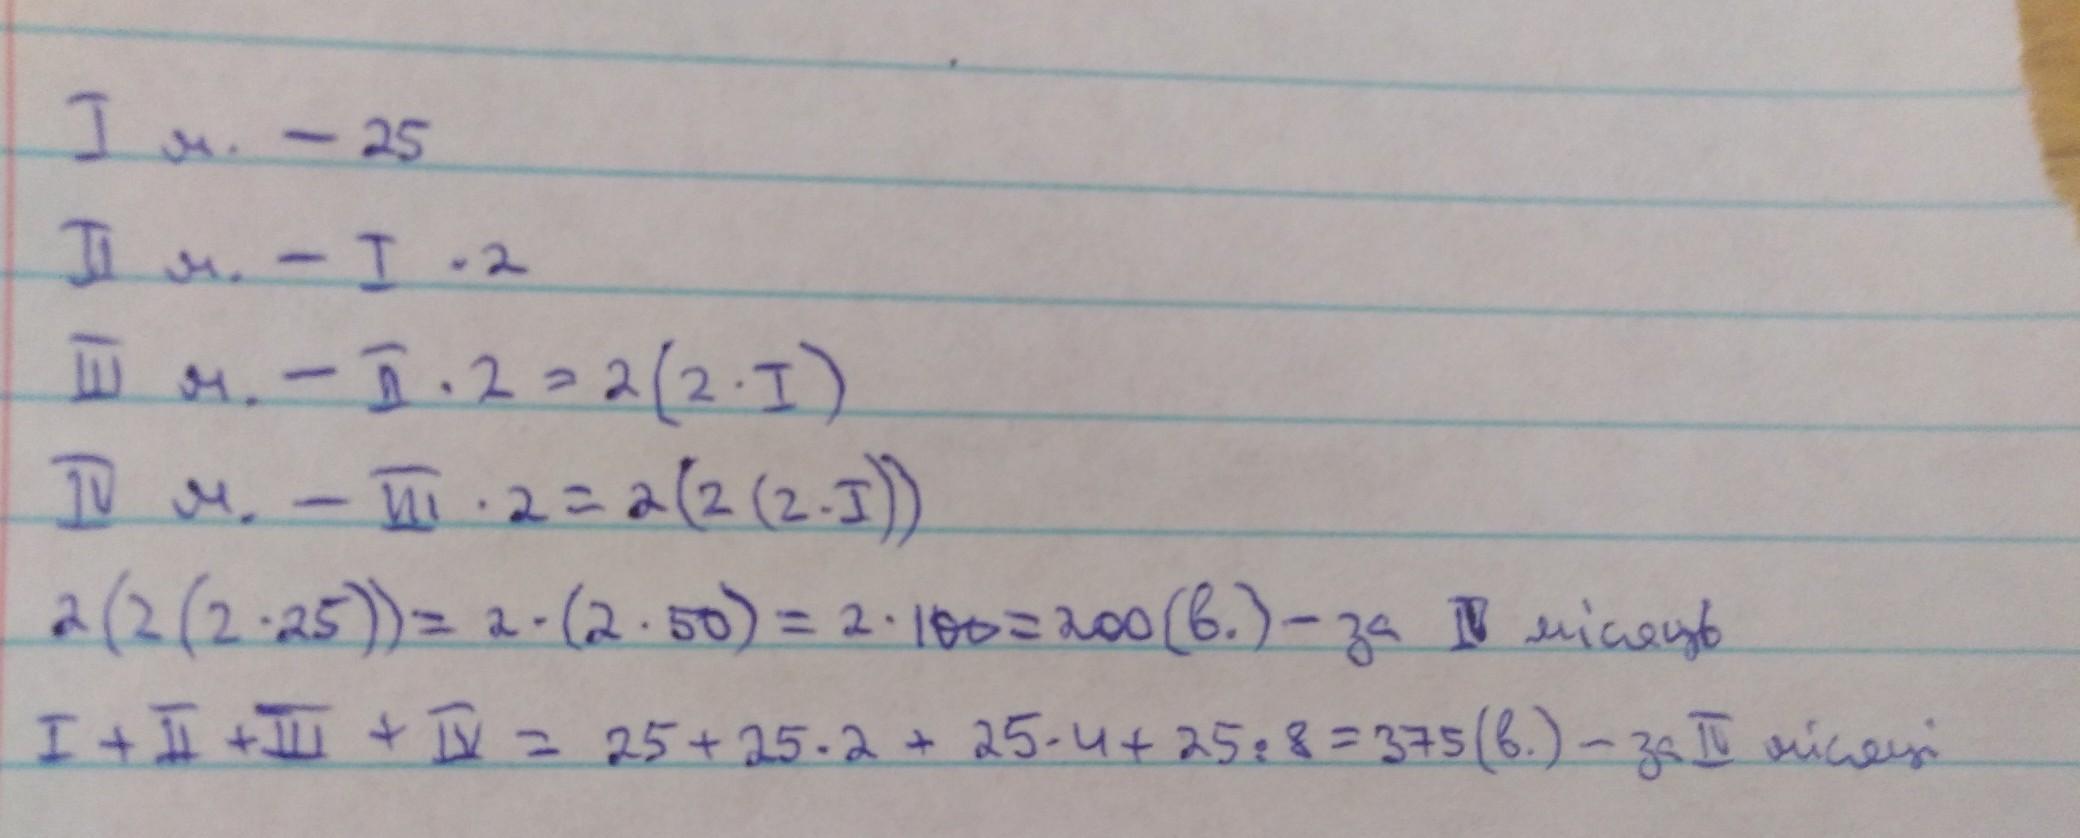 I м. – 25
II м. – I · 2
III м. – II · 2 = 2(2 · I)
IV м. – III · 2 = 2(2(2 · I))
2(2(2 · 25)) = 2 · (2 · 50) = 2 · 100 = 200 (в.) – за IV місяць
I + II + III + IV = 25 + 25 · 2 + 25 · 4 + 25 : 8 = 375 (в.) – за IV місяці